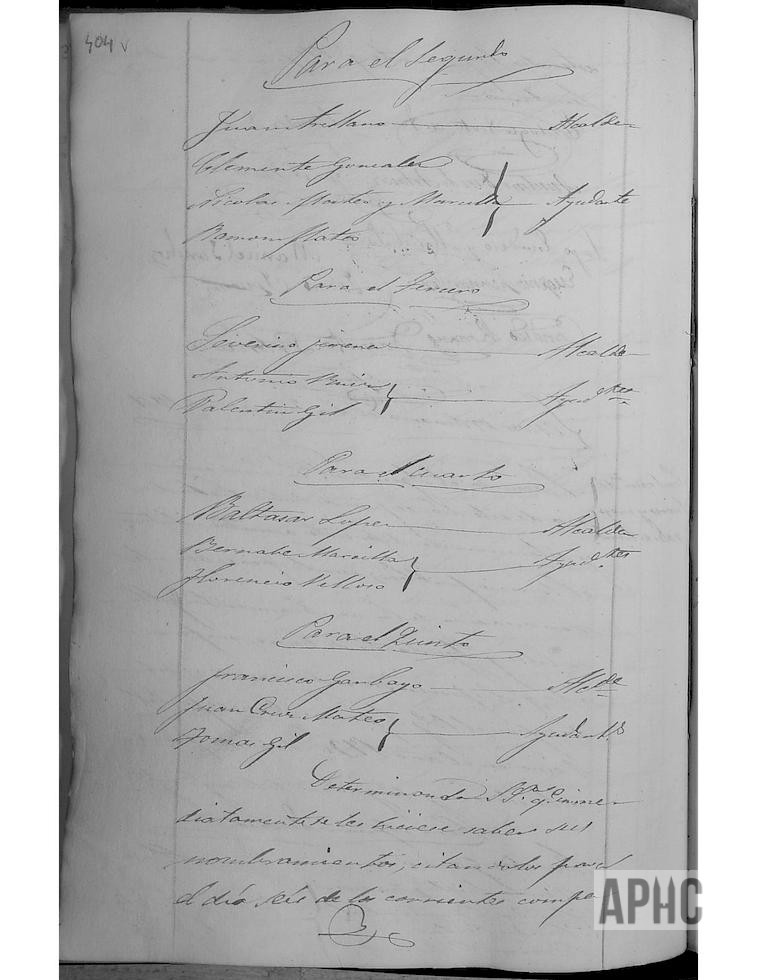 404 v
Para el Segundo
Juan Arellano Alcalde
Clemente Gonzalez
Nicolas Mateo y Marcilla Ayudante
Ramon Mateo
Para el tercero
Severino Jimenez Alcalde
Antonio Ruiz Ayudtes
Valentin Gil
Para el Cuarto
Baltasar Lopez Alcalde
Bernabe Marcilla Ayudtes
Florencio Velloso
Para el Quinto
Francisco Garbayo Alcde
Juan Cruz Mateo Ayudants
Tomas Gil
Determinando S. Sa. q. inme
diatamente se les hiciese saber sus
nombramientos, citandolos para
el dia seis de los corrientes compa
APHC